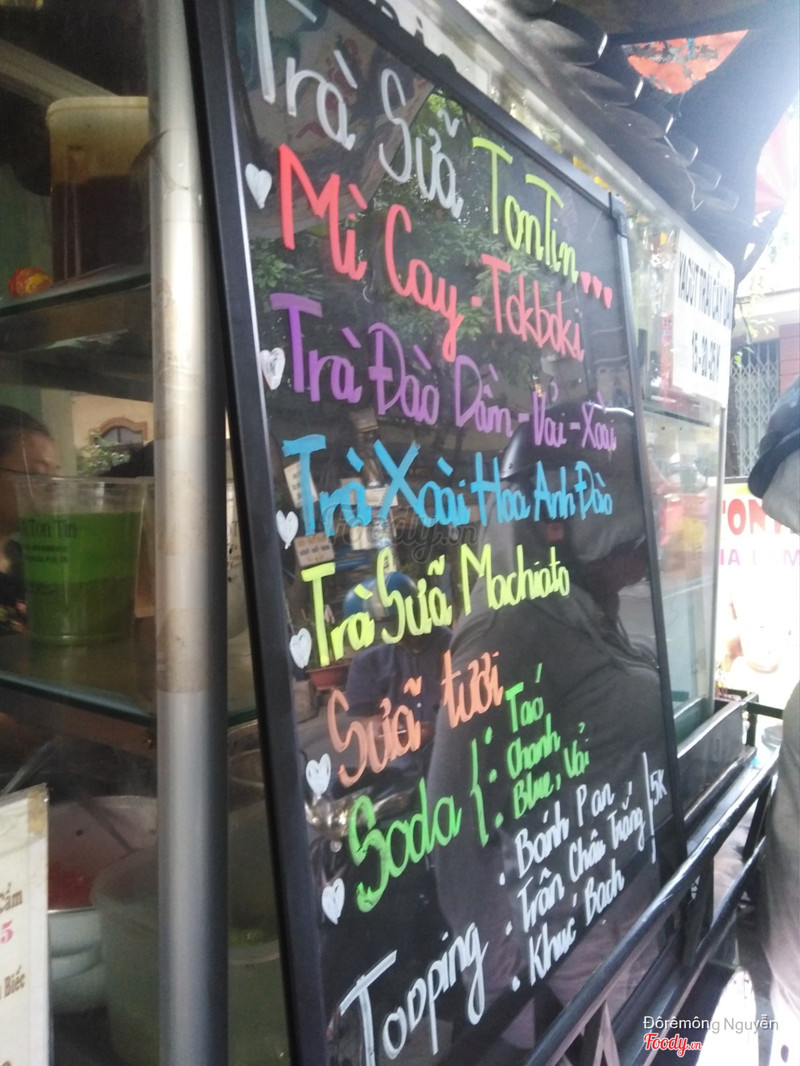 Trà Sữa TonTin...
Mì Cay - Tokboki
Trà Đào Dầm - Vải - Xoài
Trà Xoài Hoa Anh Đào
Trà Sữa Machiato
Sữa tươi
Soda { : Táo
: Chanh
. Blue, Vải
Topping . Bánh Pan
. Trân Châu Trắng | 5K
. Khúc Bạch
Ton Tin
15-20-25K
TON
Cẩm
5
Biếc
Foody.vn
Đôrêmông Nguyễn
Foody.vn